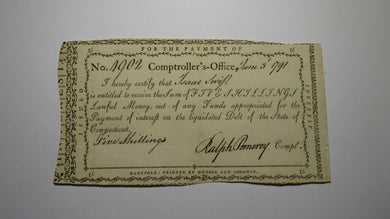 FOR THE PAYMENT OF
No. 4902 Comptroller's-Office, June 3d 1791
I hereby certify that Isaac Swift
is entitled to receive the Sum of FIVE SHILLINGS
Lawful Money, out of any Funds appropriated for the
Payment of interest on the liquidated Debt of the State of
Connecticut.
Five Shillings
Ralph Pomeroy Compt.
HARTFORD: PRINTED BY HUDSON AND GOODWIN.
ISSUED